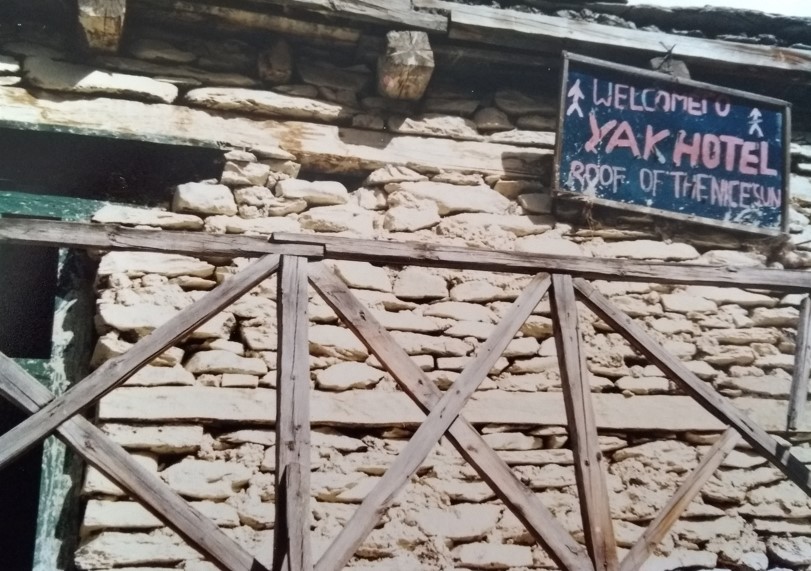 WELCOME TO
YAK HOTEL
ROOF. OF THE NICE SUN